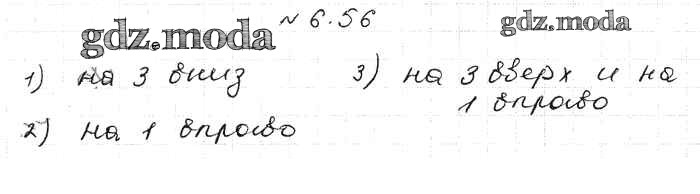 gdz.moda № 6.56 gdz.moda
1) на 3 вниз
2) на 1 вправо
3) на 3 вверх и на
1 вправо